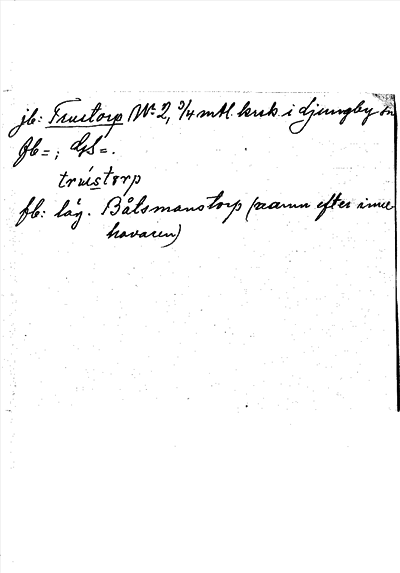 jb: Trustorp No 2, 3/4 mtl. krsk. i Ljungby sn
fb=; GS=.
trústorp
fb: läg. Båtsmanstorp (namn efter inne-
havaren)